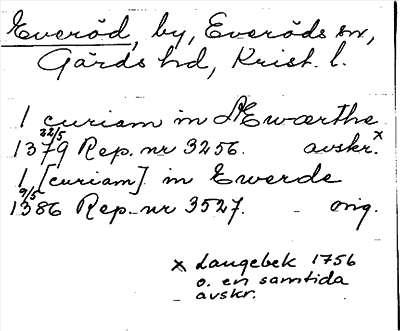 Everöd, by, Everöds sn,
Gärds hd, Krist. l.
1 curiam in Ewærthe
22/5
1379 Rep. nr 3256. avskr.x
1 [curiam] in Ewerde
9/5
1386 Rep. nr 3527. orig.
x Langebek 1756
o. en samtida
avskr.